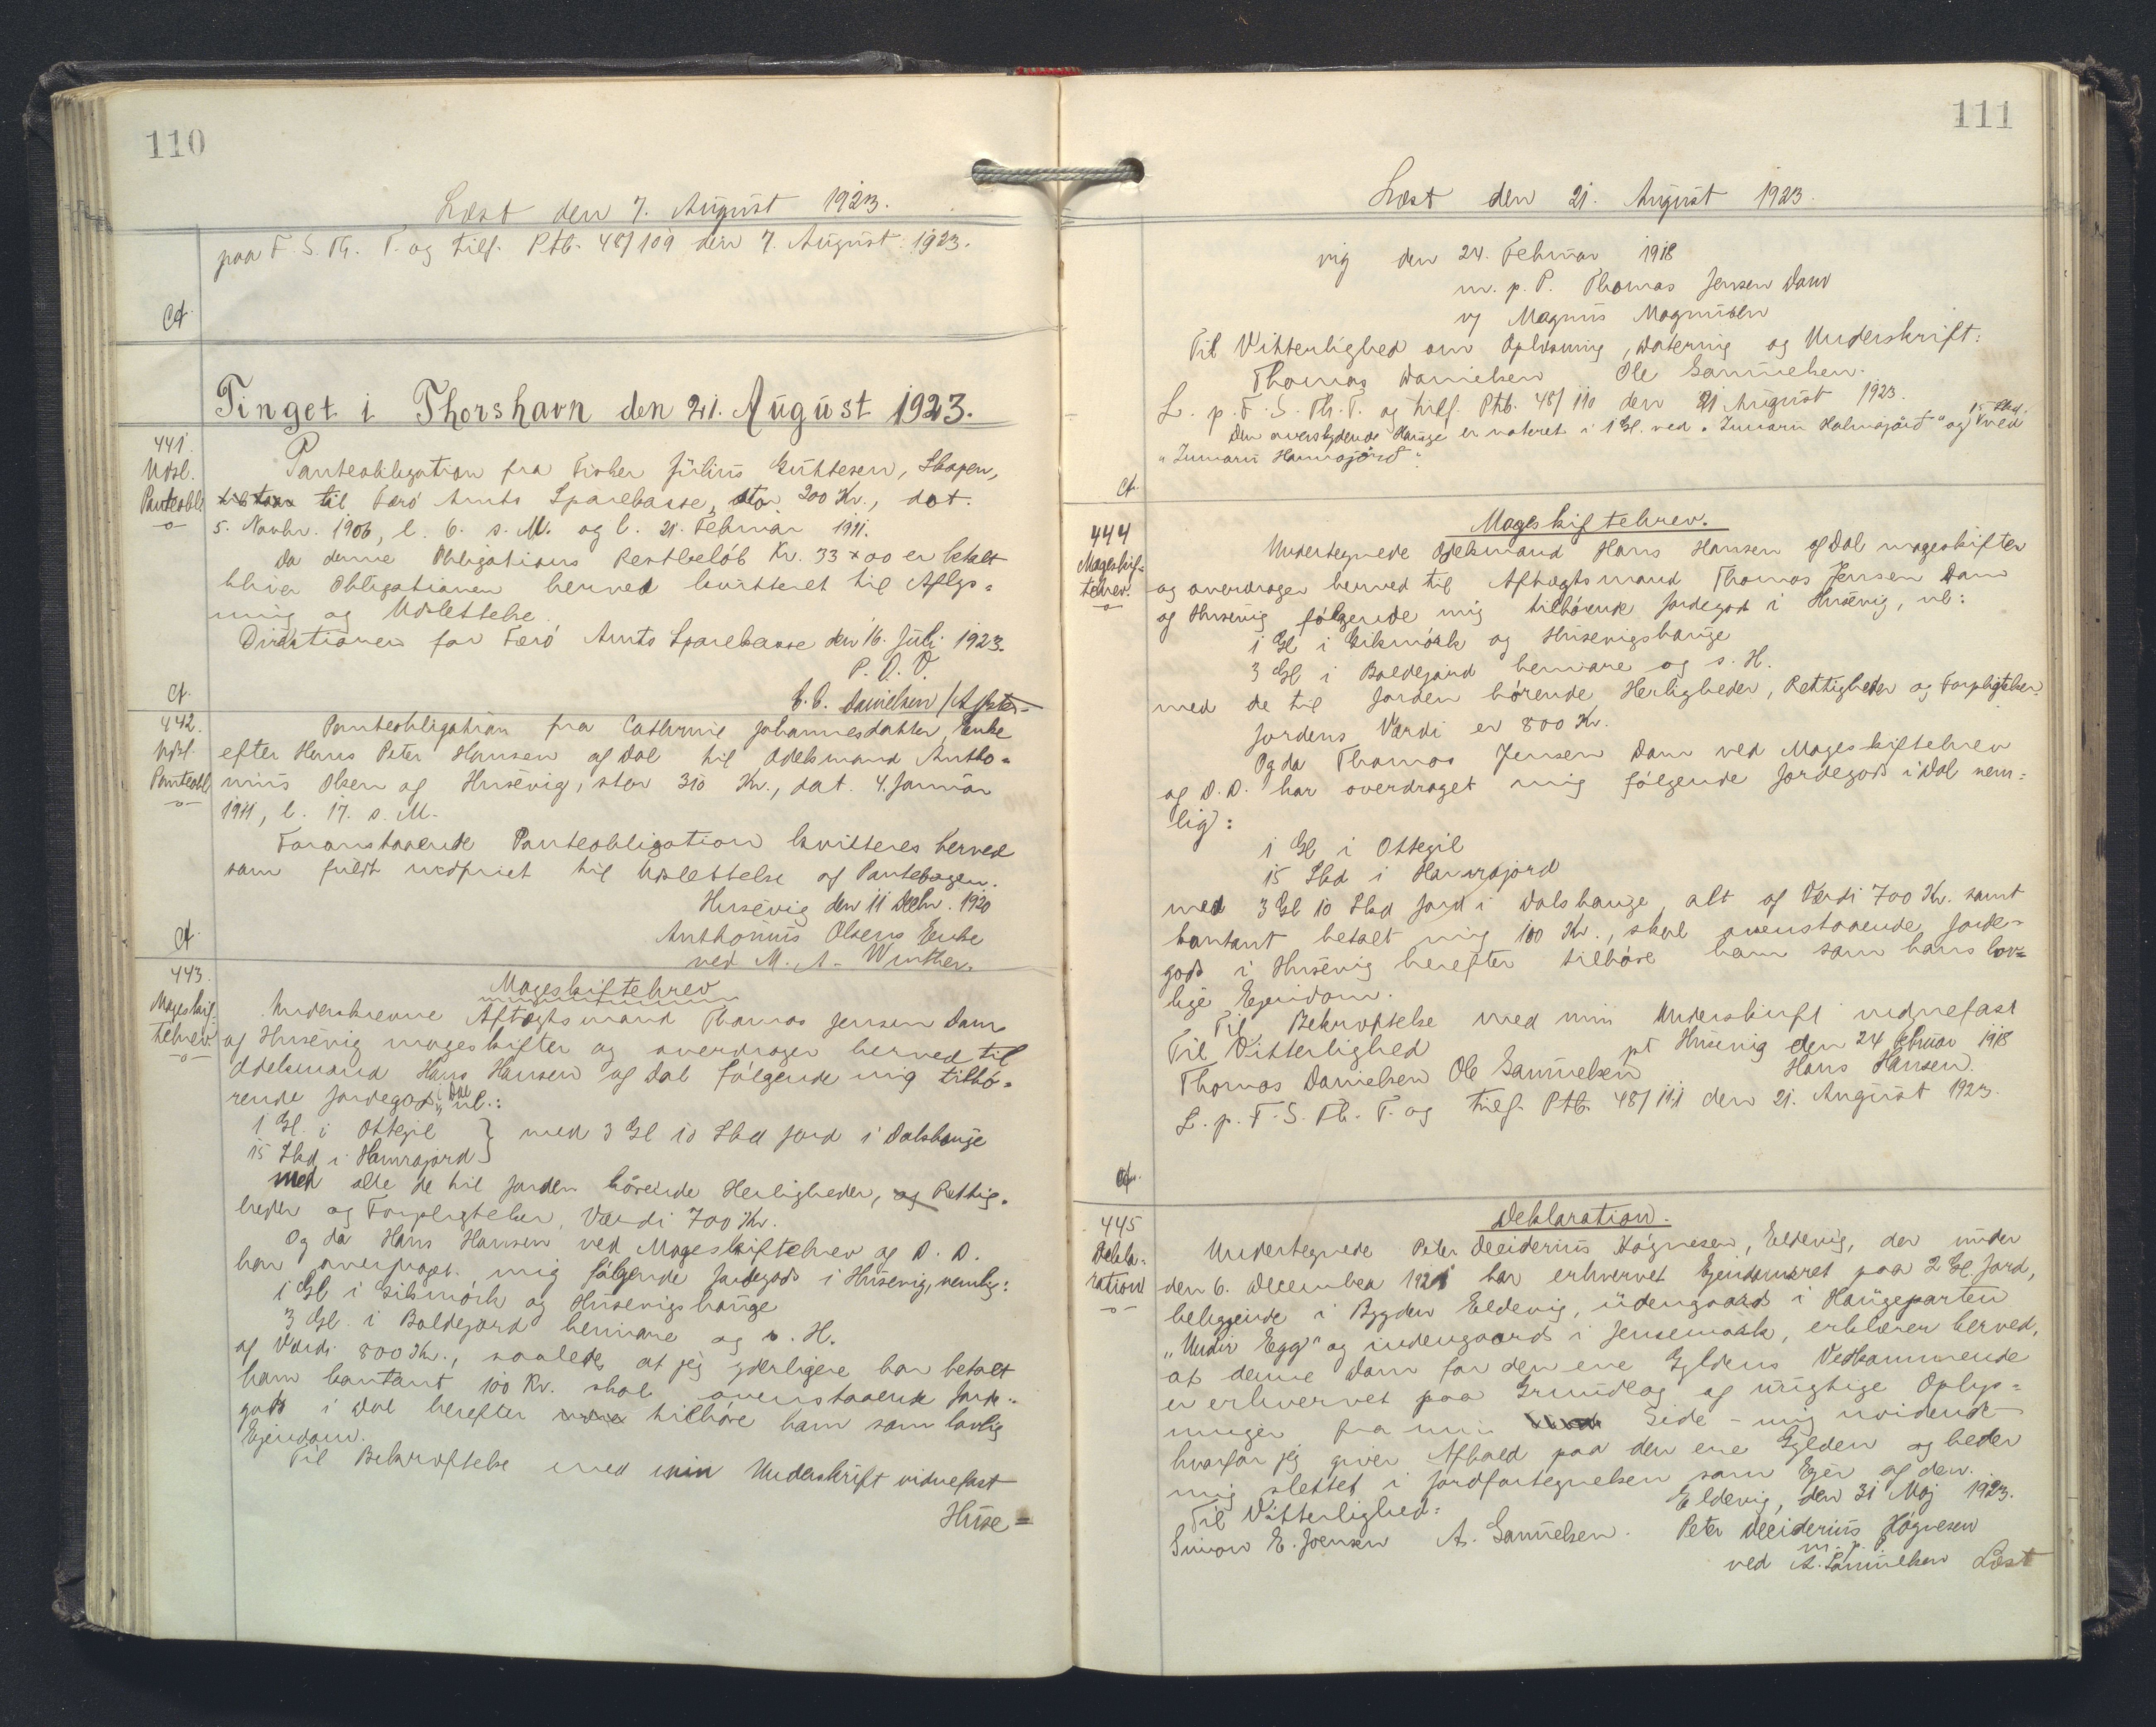 110
Læst den 7. August 1923.
paa F. S. Th. T. og tilf. Ptb. 48/109 den 7. August 1923.
Tinget i Thorshavn den 21. August 1923.
441.
Udsl.
Panteobl.
Panteobligation fra Fisker Júliús Guttesen, Skopen,
til Færö Amts Sparekasse, stor 200 Kr., dat.
5. Novbr. 1906, l. 6. s. M. og l. 21. Februar 1911.
Da denne Obligations Restbelöb Kr. 33 x 00 er betalt
bliver Obligationen herved kvitteret til Aflys-
ning og Udslettelse.
Direktionen for Færö Amts Sparekasse den 16. Júli 1923.
P. D. V.
C. C. Danielsen /
442.
Udsl.
Panteobl.
Panteobligation fra Cathrine Johannesdatter, Enke
efter Hans Peter Hansen af Dal til Odelsmand Antho-
niús Olsen af Húsevig, stor 310 Kr., dat. 4. Januar
1911, l. 17. s. M.
Foranstaaende Panteobligation kvitteres herved
som fuldt indfriet til Udslettelse af Pantebogen.
Húsevig den 11 Decbr. 1920
Anthoniús Olsens Enke
ved M. A. Winther.
443.
Mageskif-
tebrev
Mageskiftebrev
Underskrevne Aftægtsmand Thomas Jensen Dam
af Húsevig mageskifter og overdrager herved til
Odelsmand Hans Hansen af Dal følgende mig tilhö-
rende Jordegods i Dal nl.:
1 Gl. i Ottegil
15 Skd. i Hamrajord } med 3 Gl 10 Skd Jord i Dalshauge
med alle de til Jorden hörende Herligheder, og Rettig-
heder og Forpligtelser, Værdi 700 Kr.
Og da Hans Hansen ved Mageskiftebrev af D. D.
har overdraget mig fölgende Jordegods i Húsevig, nemlig:
1 Gl i Gilsmörk og Húsevigshauge
3 Gl. i Boldegjord hennare og s. H.
af Værdi 800 Kr., saaledes at jeg yderligere har betalt
ham kontant 100 Kr. skal ovenstaaende Jorde-
gods i Dal herefter tilhöre ham som lovlig
Ejendom.
Til Bekræftelse med min Underskrift vidnefast
Húse-
111
Læst den 21. August 1923.
vig den 24. Februar 1918
m. p. P. Thomas Jensen Dam
v/ Magnus Magnussen
Til Vitterlighed om Oplæsning, Datering og Underskrift:
Thomas Danielsen Ole Samuelsen.
L. p. F. S. Th. T. og tilf. Ptb. 48/110 den 21 August 1923.
Den overskydende Hauge er noteret i 1 Gl. ved "Innari Halmsjörd" og 15 Skd. ved
"Innari Hamrajörd".
444
Mageskif-
tebrev.
Mageskiftebrev.
Undertegnede Odelsmand Hans Hansen af Dal mageskifter
og overdrager herved til Aftægtsmand Thomas Jensen Dam
af Húsevig fölgende mig tilhörende Jordegods i Húsevig, nl:
1 Gl i Gilsmörk og Húsevigshauge
3 Gl i Boldegjord hennare og s. H.
med de til Jorden hörende Herligheder, Rettigheder og Forpligtelser.
Jordens Værdi er 800 Kr.
Og da Thomas Jensen Dam ved Mageskiftebrev
af D. D. har overdraget mig fölgende Jordegods i Dal nem-
lig:
1 Gl i Ottegil
15 Skd i Hamrajord
med 3 Gl 10 Skd Jord i Dalshauge, alt af Værdi 700 Kr. samt
kontant betalt mig 100 Kr., skal ovenstaaende Jorde-
gods i Húsevig herefter tilhöre ham som hans lov-
lige Ejendom.
Til Bekræftelse med min Underskrift vidnefast
pt Húsevig den 24 Februar 1918
Til Vitterlighed
Hans Hansen.
Thomas Danielsen Ole Samuelsen
L. p. F. S. Th. T. og tilf. Ptb. 48/111 den 21. August 1923.
445
Dekla-
ration
Deklaration.
Undertegnede Peter Deciderius Högnesen, Eldevig, der under
den 6. December 1921 har erhvervet Ejendomsret paa 2 Gl. Jord,
beliggende i Bygden Eldevig, udengaards i Haugeparten
"Undir Egg" og indengaards i Jensemark, erklærer herved,
at denne Dom for den ene Gyldens Vedkommende
er erhvervet paa Grundlag af urigtige Oplys-
ninger fra min Side - mig uvidende
hvorfor jeg giver Afkald paa den ene Gylden og beder
mig slettet i Jordfortegnelsen som Ejer af den.
Eldevig, den 31 Maj 1923.
Til Vitterlighed:
Simon E. Joensen A. Samuelsen. Peter Deciderius Högnesen
m. p. P.
ved A. Samuelsen Læst